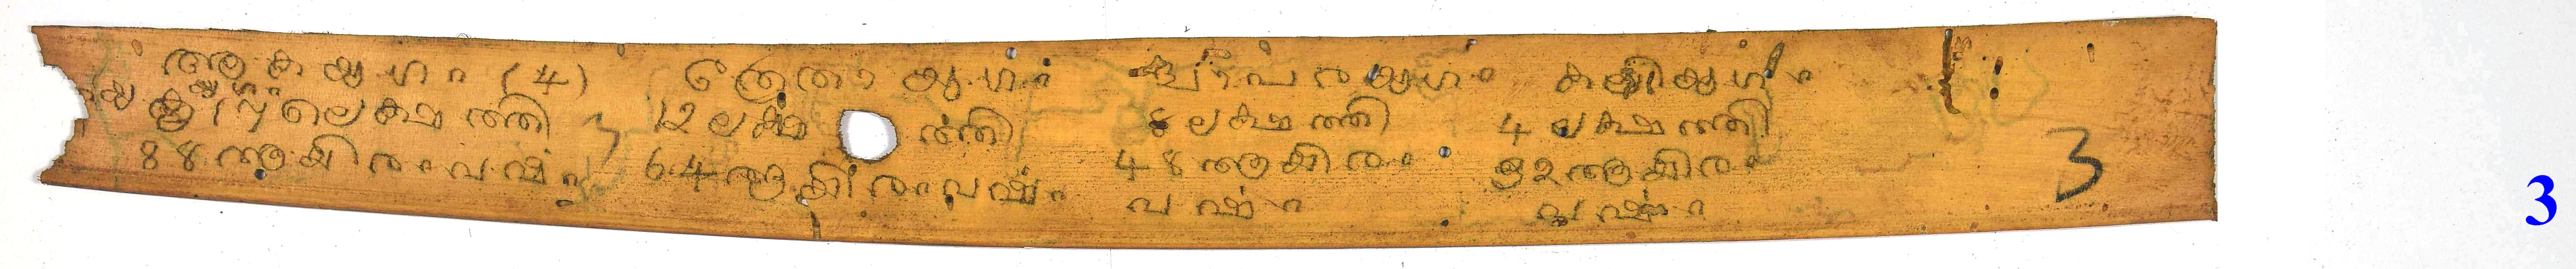 ആക യുഗം (4) ത്രേതാ യുഗം ദ്വാപരയുഗം കലിയുഗം
17 ലെക്ഷത്തി 12 ലക്ഷ ത്തി 8 ലക്ഷത്തി 4 ലക്ഷത്തി
88 ആയിരം വഷം 64 ആയിരം വഷം 48 ആയിരം 32 ആയിരം
വഷം വഷം
3
3